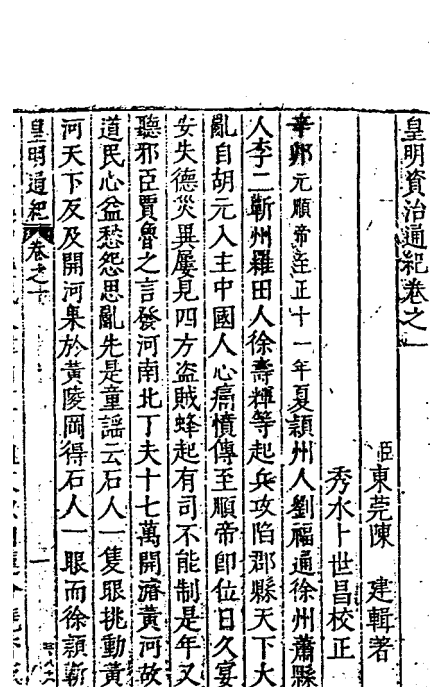 皇明資治通紀卷之一
臣東莞陳 建輯著
秀水卜世昌校正
辛卯元順帝至正十一年夏潁州人劉福通徐州蕭縣
人李二蘄州羅田人徐壽輝等起兵攻陷郡縣天下大
亂自胡元入主中國人心痛憤傳至順帝卽位日久宴
安失德災異屢見四方盜賊蜂起有司不能制是年又
聽邪臣賈魯之言發河南北丁夫十七萬開濬黃河故
道民心益愁怨思亂先是童謠云石人一隻眼挑動黃
河天下反及開河果於黃陵岡得石人一眼而徐潁蘄
皇明通紀 卷之一
一